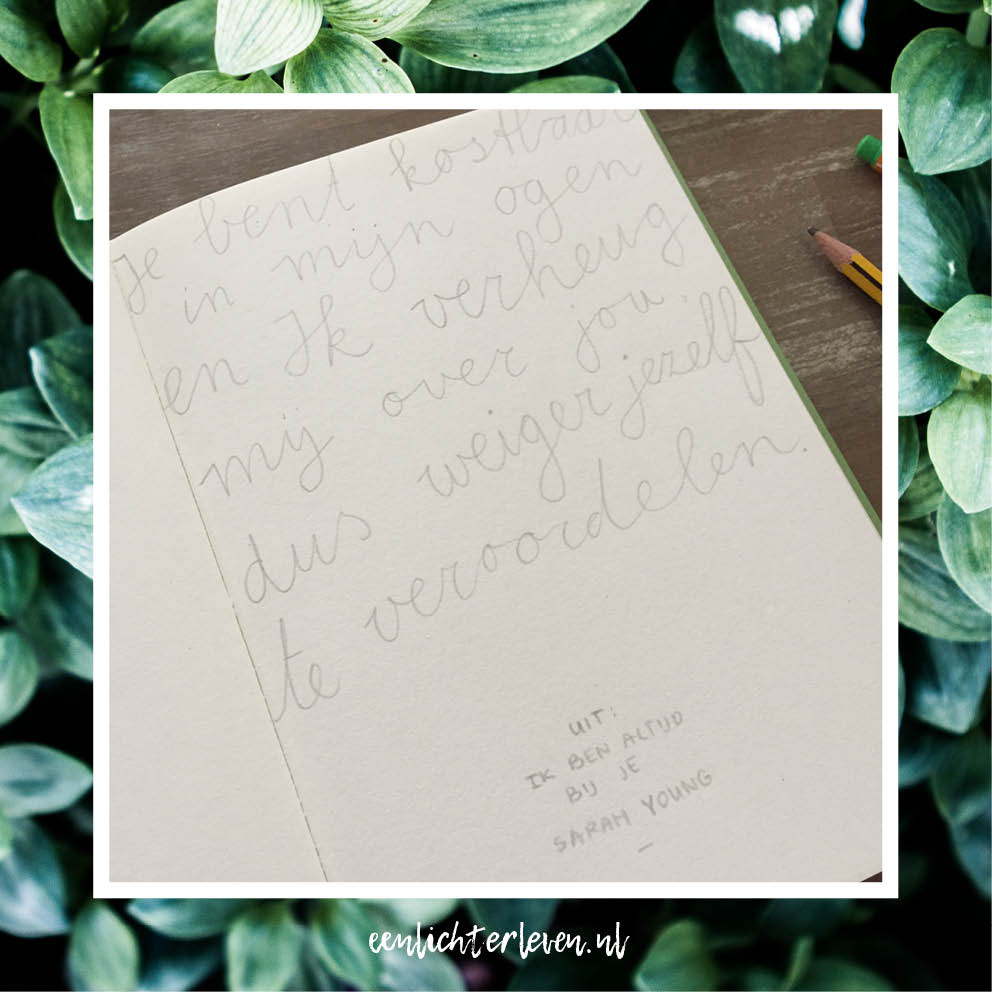 Je bent kostbaar
in mijn ogen
en Ik verheug
mij over jou.
dus weiger jezelf
te veroordelen.
UIT:
IK BEN ALTIJD
BIJ JE
SARAH YOUNG
eenlichterleven.nl